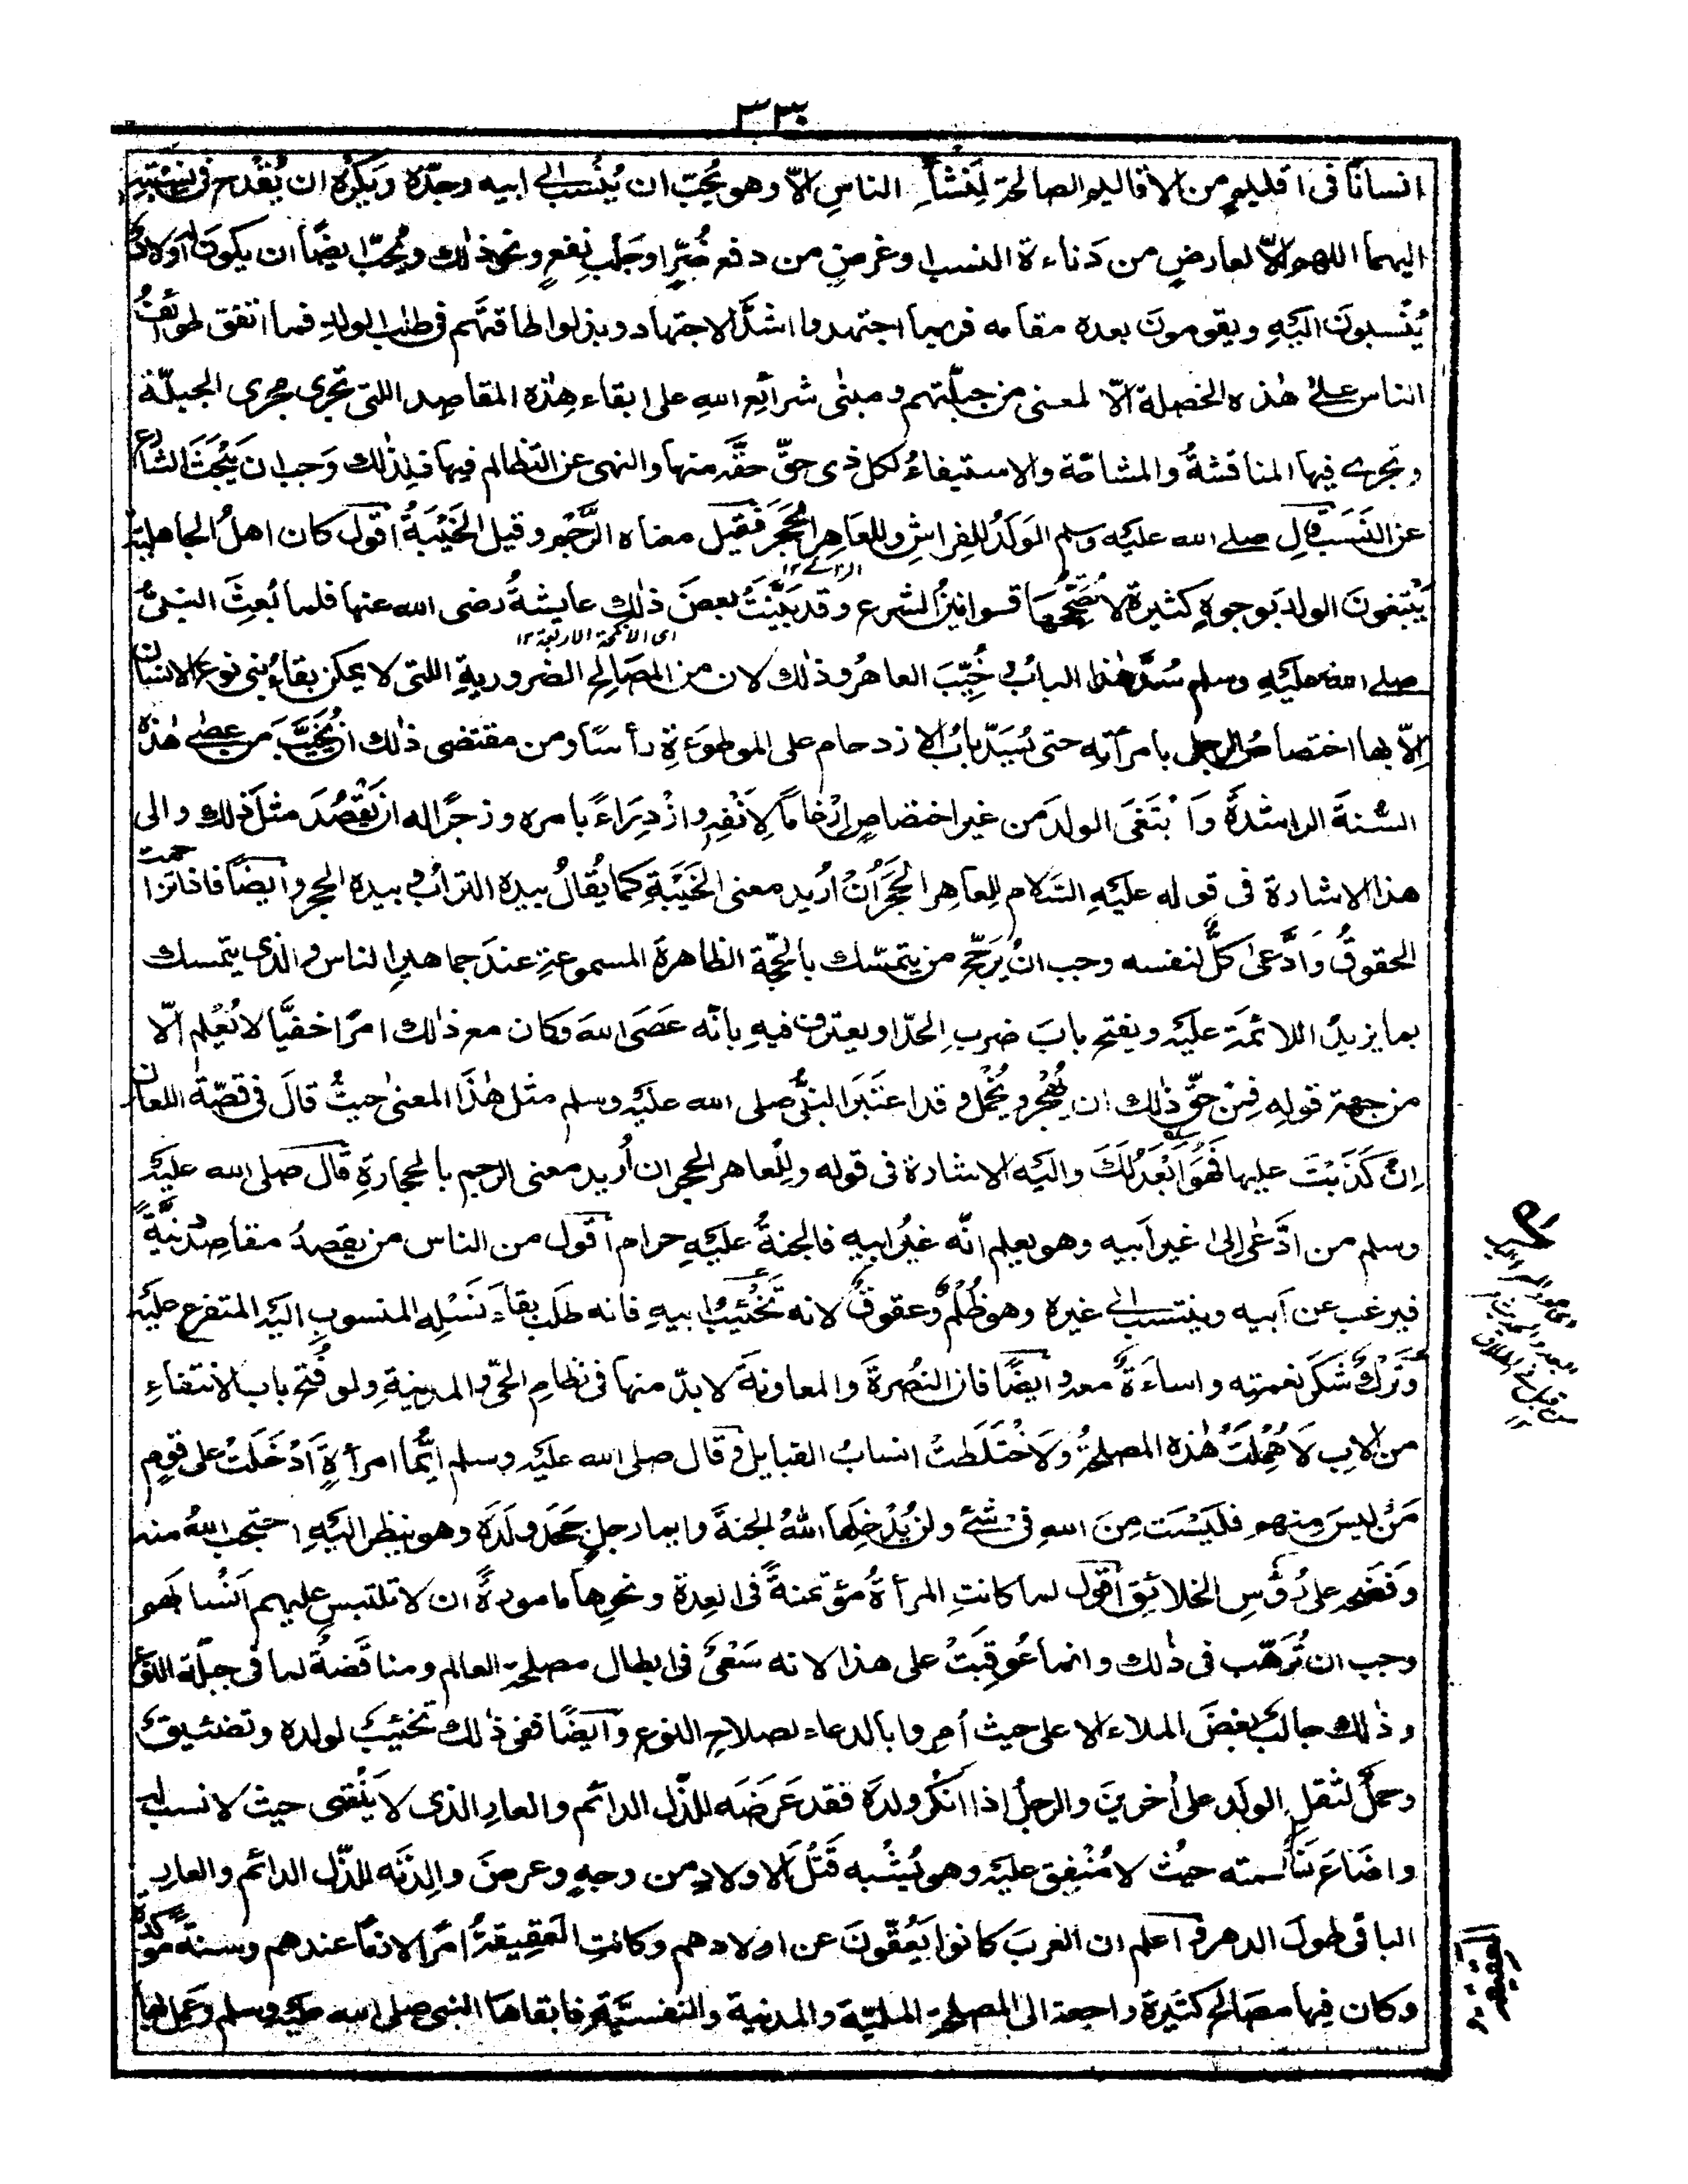 ٣٣٠
انسانًا فى اقليم من الأقاليم الصالحة لِنَشْأ الناسِ الّا وهو يُحِبّ ان يُنْسَب الى ابيه وجدّه ويَكْرُه ان يُقْدح فى نسبته
اليهما اللهم الّا لعارضٍ من دَناءة النسب او غرضٍ من دفع ضُرٍّ او جَلب نفعٍ ونحو ذٰلك ويُحبّ ايضًا ان يكون له اولادٌ
يُنْسبونَ اليَهِ ويقومونَ بعده مقامه فربما اجتهدوا اشدَّ الاجتهاد وبذلوا طاقتهم فى طلب الولدِ فما اتفق طوائفُ
الناس على هٰذه الخصلة الّا لمعنى من جبلّتهم ومبنٰى شرائع اللهِ على ابقاء هٰذه المقاصد اللتى تجرى مجرى الجبلّة
وتجرى فيها المناقشةُ والمشاحّة والاستيفاءُ لكل ذى حقّ حقَّه منها والنهى عن التظالم فيها فلذٰلك وَجب ان يَبْحَثَ الشارع
عن النَسَب قال صلى الله عليه وسلم الوَلَدُ للفِراشِ وللعَاهِرِ الحَجَر فقيل معناه الرَّجْم وقيل الخَيْبَةُ اقول كان اهلُ الجاهلية
الزانى ١٢
يَبْتغونَ الولد بوجوهٍ كثيرةٍ لا تُصَحِّحُها قوانينُ الشرع وقد بَيَّنَتْ بعضَ ذٰلك عايشةُ رضى الله عنها فلما بُعِثَ النبىُّ
اى الأنكحة الاربعة ١٢
صلى الله عليه وسلم سُدَّ هٰذا البابُ و خُيِّبَ العاهرُ وذٰلك لان من المصَالِح الضروريةِ اللتى لا يمكن بقاءُ بنى نوع الانسان
الّا بها اختصاصُ الرجل بامرأته حتى يُسَدّ بابُ الازدحام على الموطوءةِ رأسًا ومن مقتضى ذٰلك ان يُخَيَّبَ مَن عصٰى هٰذه
السُّنةَ الراشدةَ وَابْتَغَى الولدَ من غير اختصاصٍ اِرْغامًا لِاَنْفِه وازْدِرَاءً بامره وزجرًا له ان يَقْصُدَ مثلَ ذٰلك والى
هذا الاشارة فى قوله عليه السَّلام لِلعاهر الحَجَرُ اِنْ اُريد معنى الخَيْبَةِ كما يُقالُ بيده الترابُ وبيده الحجر وايضًا فاذا تزاحمت
الحقوقُ وَادَّعٰى كلٌّ لنفسه وجب ان يُرَجَّح من يتمسّك بالحجّة الظاهرة المسموعةِ عندَ جماهيرِ الناس والذى يتمسك
بما يزيدُ اللائمةَ عليه ويفتح بابَ ضربِ الحدّ او يعترف فيه بانّه عَصَى اللهَ وكان مع ذٰلك امرًا خفيًّا لا يُعْلم الّا
من جهة قوله فَمِنْ حقِّ ذٰلك ان يُهْجَر ويُخْمَل وقد اعتَبَر النبىُّ صلى الله عليه وسلم مثل هٰذا المعنٰى حيثُ قالَ فى قصّة اللعان
اِنْ كَذَبْتَ عليها فَهُوَ اَبْعَدُ لَكَ واليه الاشارة فى قوله ولِلْعاهر الحجر ان اُريد معنى الرجم بالحجارةِ قال صلى الله عليه
وسلم من ادَّعٰى اِلى غير اَبيه وهو يعلم انّه غيُر ابيهِ فالجنةُ عليهِ حرام اقول من الناس من يقصدُ مقاصدَ دنيَّةً
فيرغب عن اَبيه وينتسب الى غيره وهو ظُلْم وعقوقٌ لانه تَخْييبُ ابيهِ فانه طلَب بقاءَ نَسْلِه المنسوبِ اليه المتفرعِ عليه
وَتَرْكُ شُكْر نعمتِه واساءَةٌ معه وايضًا فان النُصْرةَ والمعاونةَ لا بدّ منها فى نظامِ الحىّ والمدينةِ ولو فُتح باب الانتفاءِ
من الاب لَاُهْمِلَتْ هٰذه المصلحةُ ولَاخْتَلَطتْ انسابُ القبايل وقال صلى الله عليه وسلم ايُّما امرأةٍ اَدْخَلَتْ على قومٍ
مَنْ ليسَ منهم فلَيْسَت مِنَ اللهِ فى شئٍ ولن يُدْخِلَها اللهُ الجنةَ وايما رجلٍ جَحَد ولَدَه وهو ينظر اليَهِ احتجب اللهُ منه
وفَضَحه على رُؤسِ الخلائق اقول لما كانتِ المرأةُ مؤتمنةً فى العِدة ونحوِها مامورةً ان لا تلتبس عليهم اَنْسابَهم
وجب ان تُرَهَّب فى ذٰلك وانما عُوقِبَتْ على هذا لانه سَعْىٌ فى ابطال مصلحةِ العالم ومناقَضةٌ لما فى جبلّة النوع
وذٰلك جالبٌ بغضَ الملاء الاعلى حيث اُمِروا بالدعاء لصلاح النوع وايضًا ففى ذٰلك تخييبٌ لولده وتضييقٌ
وحملٌ لثقلِ الولَد على اٰخرينَ والرجلُ اذا انكَر ولدَه فقد عَرَضَه للذّل الدائم والعارِ الذى لا يَنْتهى حيث لا نسب له
واضَاعَ نَسَمته حيثُ لا مُنْفِق عليْه وهو يُشْبه قَتْلَ الاولادِ من وجهٍ وعرضَ والِدتَه للذّل الدائم والعارِ
الباقى طولَ الدهر واعلم ان العَربَ كانوا يَعُقّونَ عن اولادهم وكانتِ العَقِيقةُ امرًا لازمًا عندهم وسنةً مؤكدةً
وكان فيها مصَالح كثيرة راجعة الى المصلحةِ المليّة والمدنية والنفسيّةِ فابقاهَا النبى صلى الله عليه وسلم وعَمِل بها
العقيقة